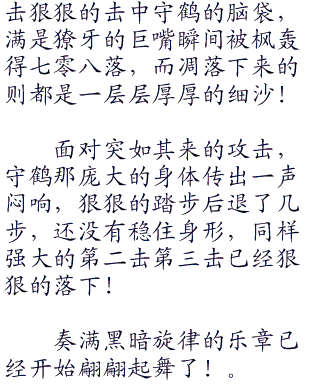 击狠狠的击中守鹤的脑袋，
满是獠牙的巨嘴瞬间被枫轰
得七零八落，而凋落下来的
则都是一层层厚厚的细沙！
面对突如其来的攻击，
守鹤那庞大的身体传出一声
闷响，狠狠的踏步后退了几
步，还没有稳住身形，同样
强大的第二击第三击已经狠
狠的落下！
奏满黑暗旋律的乐章已
经开始翩翩起舞了！。